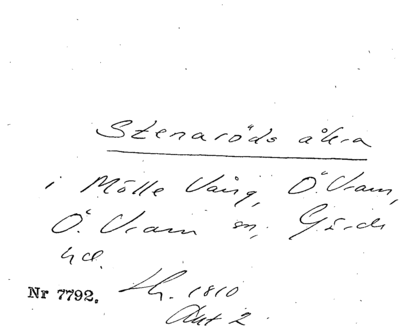 Stenaröds åkra
i Mölle Vång, Ö. Vram,
Ö. Vram sn, Gärds
hd.
Nr 7792. Lh. 1810
Akt 2